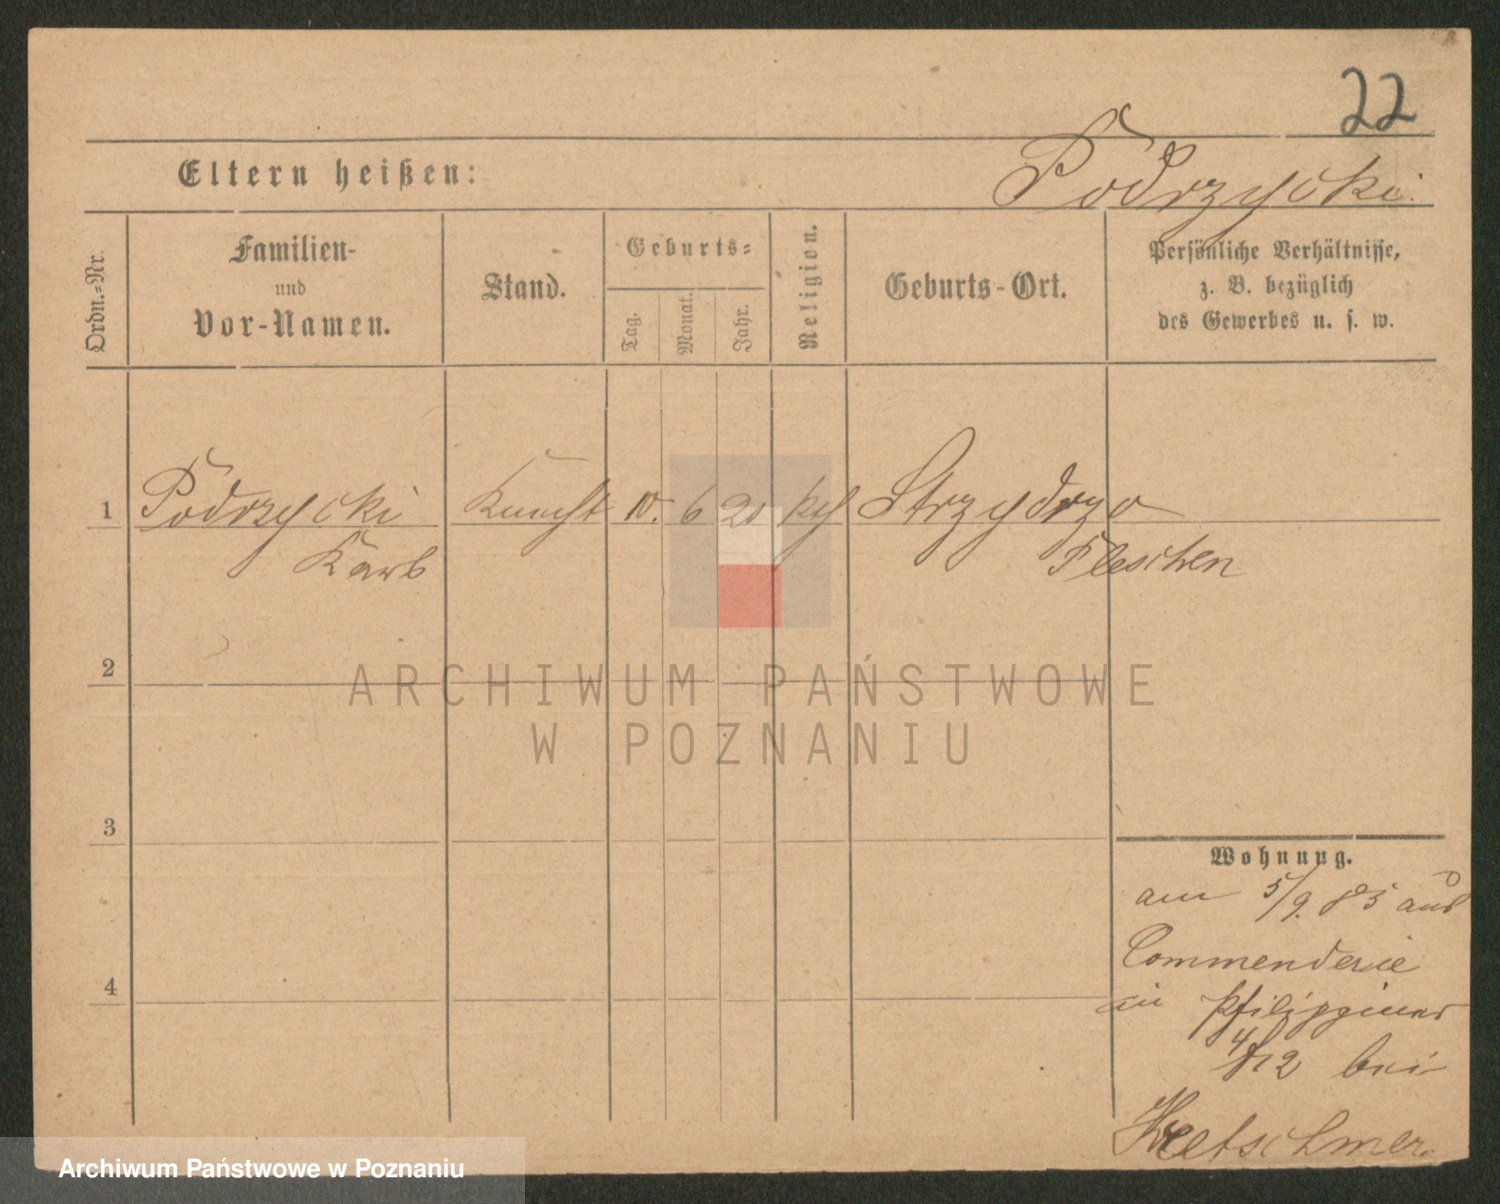 22
Eltern heißen: Podrzycki
Ordn.-Nr.
Familien-
und
Vor-Namen.
Stand.
Geburts-
Tag.
Monat.
Jahr.
Religion.
Geburts-Ort.
Persönliche Verhältnisse,
z. B. bezüglich
des Gewerbes u. s. w.
1 Podrzycki Knecht 10. 6 20 kth Strzydrzo
Karl Pleschen
2
3
4
Wohnung.
am 5/9. 85 aus
Commenderie
in
4/12 bei
Kretschmer
ARCHIWUM PAŃSTWOWE
W POZNANIU
Archiwum Państwowe w Poznaniu